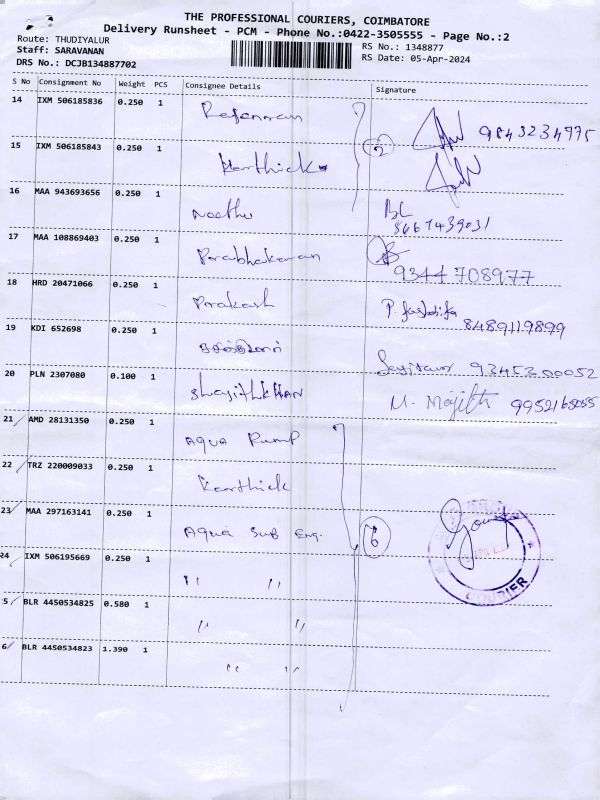 THE PROFESSIONAL COURIERS, COIMBATORE
Delivery Runsheet - PCM - Phone No.:0422-3505555 - Page No.:2
Route: THUDIYALUR
Staff: SARAVANAN
DRS No.: DCJB134887702
RS No.: 1348877
RS Date: 05-Apr-2024
S No Consignment No Weight PCS Consignee Details Signature
14 IXM 506185836 0.250 1 9843234775
15 IXM 506185843 0.250 1 Karthick 2
16 MAA 943693656 0.250 1 Neethu BL
8667439031
17 MAA 108869403 0.250 1 Prabhakaran
9344708977
18 HRD 20471066 0.250 1 Prakash
8489119899
19 KDI 652698 0.250 1
20 PLN 2307080 0.100 1 M. Majith
21 AMD 28131350 0.250 1 AQUA Pump
22 TRZ 220009033 0.250 1 Karthick
23 MAA 297163141 0.250 1 Aqua Sub Eng. 6
24 IXM 506195669 0.250 1 " "
5 BLR 4450534825 0.580 1 " "
6 BLR 4450534823 1.390 1 " "
COURIER